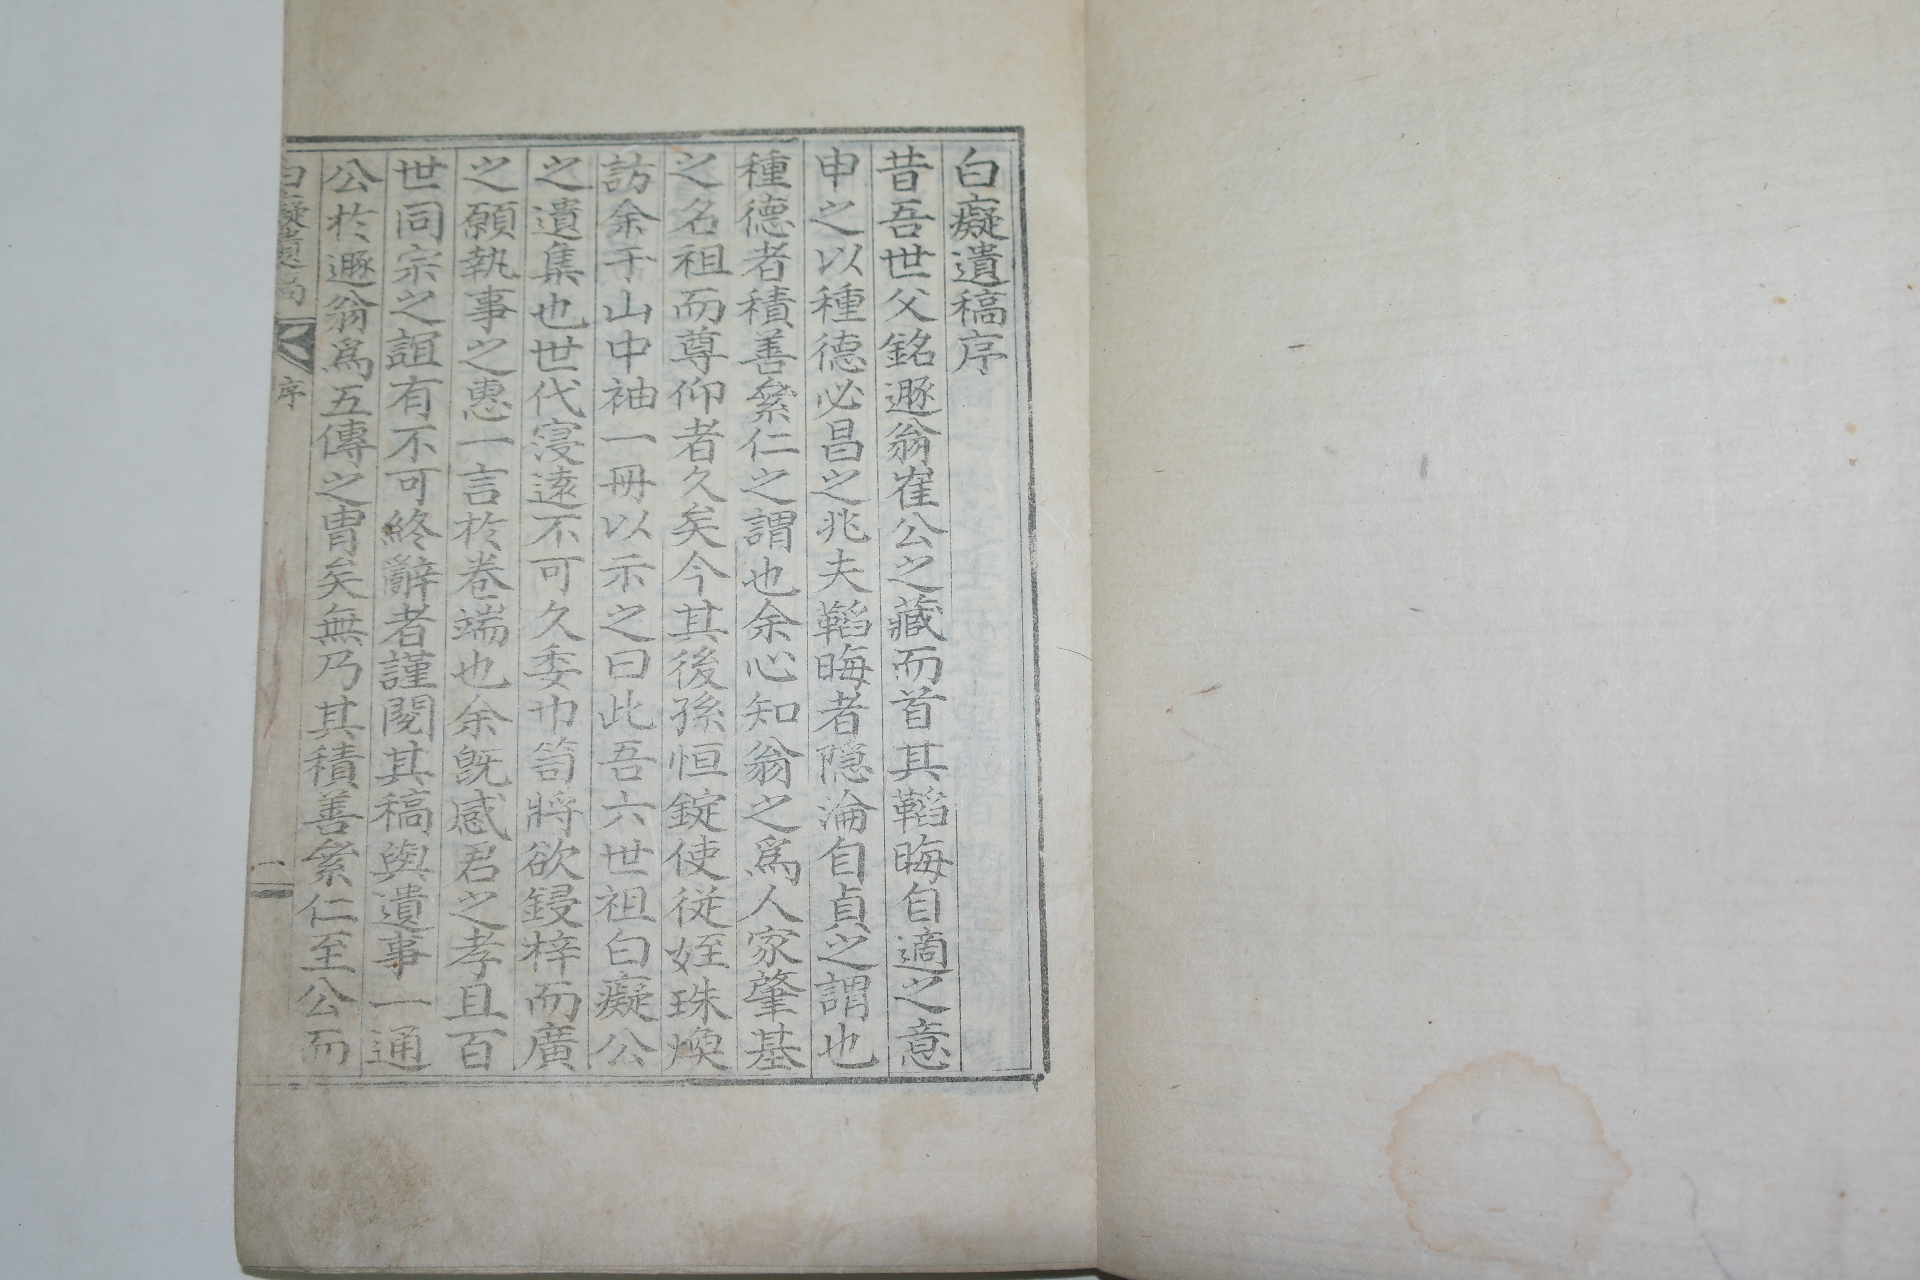 白癡遺稿序
昔吾世父銘遯翁崔公之藏而首其鞱晦自適之意
申之以種德必昌之兆夫鞱晦者隐淪自貞之謂也
種德者積善絫仁之謂也余心知翁之爲人家肇基
之名祖而尊仰者久矣今其後孫恒錠使從姪珠煥
訪余于山中袖一冊以示之曰此吾六世祖白癡公
之遺集也世代寖遠不可久委巾笥將欲鋟梓而廣
之願執事之惠一言於卷端也余旣感君之孝且百
世同宗之誼有不可終辭者謹閱其稿與遺事一通
公於遯翁爲五傳之胄矣無乃其積善絫仁至公而
白癡遺稿 序 一